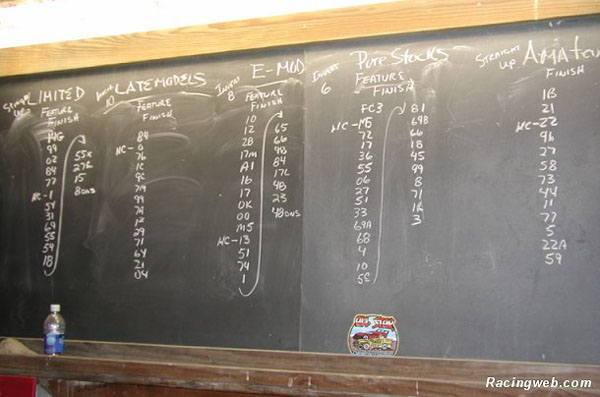 STRAIGHT UP
LIMITED
FEATURE
FINISH
99
02
84
77
HC-1
54
31
69
55
54
18
55x
27L
15
8 ONS
INVERT
10
LATE MODELS
FEATURE
FINISH
84
HC-6
76
1C
9C
99
12
29
71
64
21
04
INVERT
8
E-MOD
FEATURE
FINISH
10
12
28
17M
A1
16
17
OK
00
M5
HC-13
51
74
1
65
66
98
84
17C
48
23
48 ONS
INVERT
6
PURE STOCKS
FEATURE
FINISH
FC3
HC-M5
72
17
36
55
06
27
51
33
69A
68
4
10
5C
81
69B
66
18
45
99
8
71
1R
3
STRAIGHT UP
AMATEU
FINISH
1B
21
HC-22
96
27
58
73
44
11
77
5
22A
59
Racingweb.com